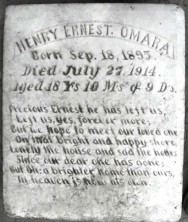 HENRY ERNEST. OMARA
Born Sep. 18, 1895.
Died July 27, 1914.
Aged 18 Ys 10 Ms & 9 Ds.
Precious Ernest he has left us,
Left us, yes, forever more;
But we hope to meet our loved one
On that bright and happy shore,
Lonely the house and sad the home,
Since our dear one has gone;
But oh, a brighter home than ours,
In heaven is now his own.